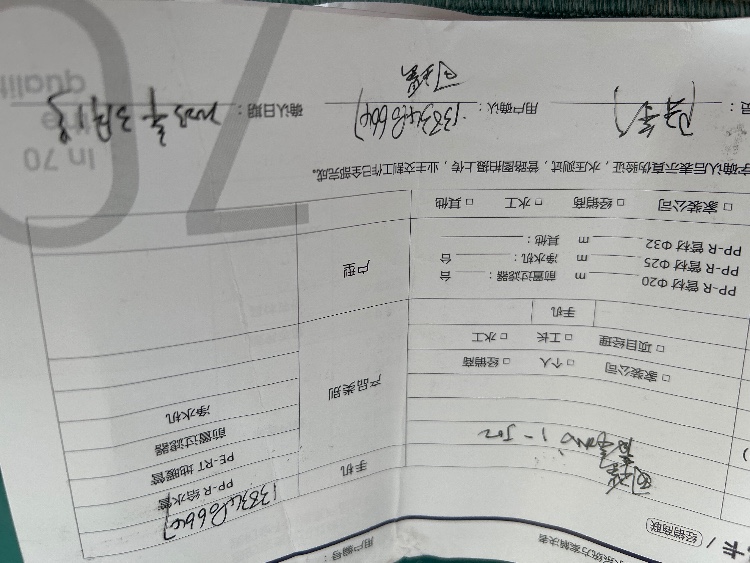 系统方案解决者
用户编号：
卡 /（经销商联）
手机
13834086647
PP-R 给水管
PE-RT 地暖管
前置过滤器
净水机
产品类别
□ 家装公司 □ 个人 □ 经销商
□ 项目经理 □ 工长 □ 水工
手机
户型
PP-R 管材 Φ20 m 前置过滤器： 台
PP-R 管材 Φ25 m 净水机： 台
PP-R 管材 Φ32 m 其他：
□ 家装公司 □ 经销商 □ 水工 □ 其他
字确认后表示真伪验证，水压测试，管路图拍摄上传，业主交割工作已全部完成。
员：
用户确认：
13834086647
确认日期：
2023年3月18
In 70
quality
70